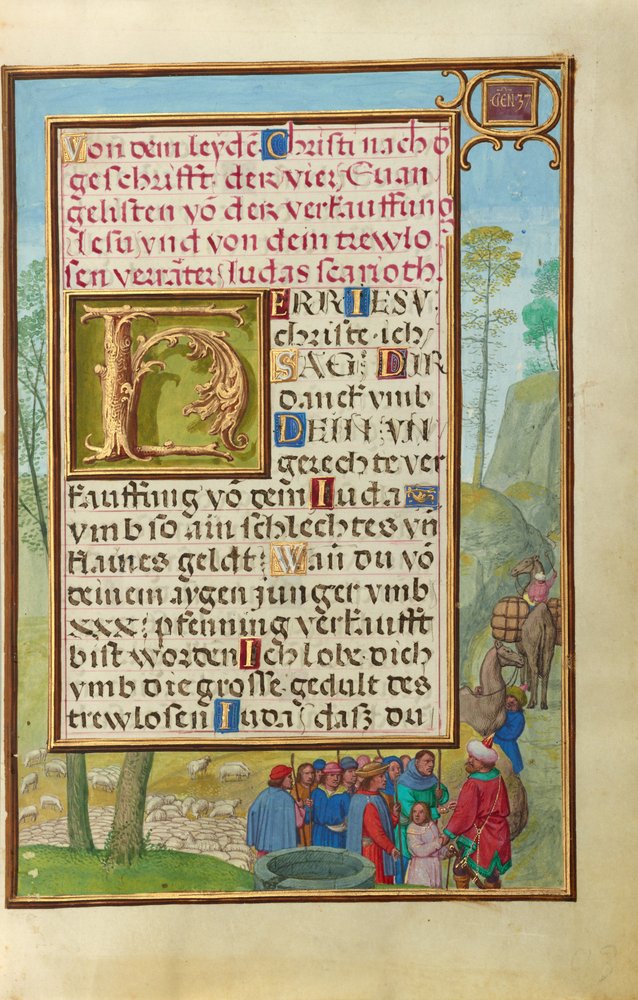 GEN·37
Von dem leydē Christi nach ō
geschrifft der vier Euan
gelisten vō der verkauffung
Jesu vnd von dem trewlo
sen verräter Judas scarioth.
HERR IESV
christe ich
SAG DIR
danck vmb
DEIN VN
gerechte ver
kauffung vō dem Iuda
vmb so ain schlechtes vn̄
klaines geldt: Wan̄ du vō
deinem aygen junger vmb
XXX: pfenning verkaufft
bist worden Ich lobe dich
vmb die grosse gedult des
trewlosen Iuda daſz du